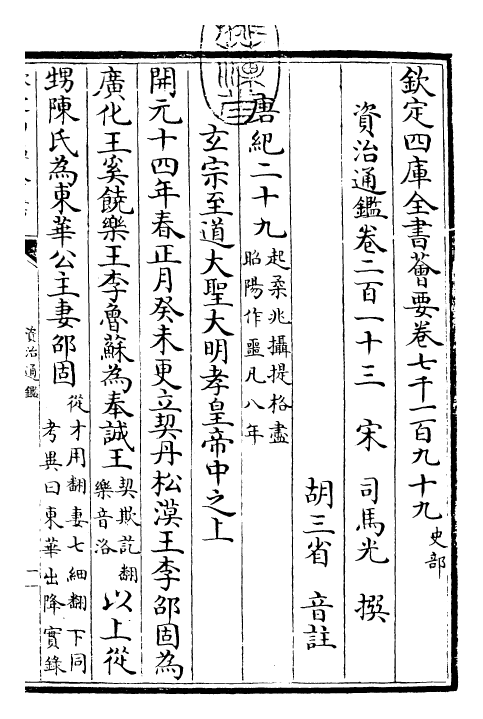 欽定四庫全書薈要卷七千一百九十九 史部
資治通鑑卷二百一十三 宋 司馬光 撰
胡三省 音註
唐紀二十九 起柔兆攝提格盡昭陽作噩凡八年
玄宗至道大聖大明孝皇帝中之上
開元十四年春正月癸未更立契丹松漠王李邵固為
廣化王奚饒樂王李魯蘇為奉誠王 契欺訖翻樂音洛 以上從
甥陳氏為東華公主妻邵固 從才用翻妻七細翻下同考異曰東華出降實錄
資治通鑑
一